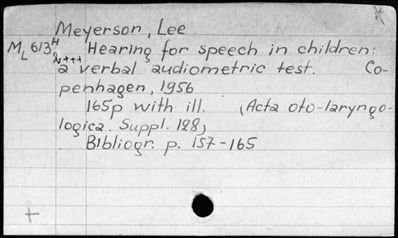 Meyerson, Lee
ML 613H Hearing for speech in children:
a verbal audiometric test. Co-
penhagen, 1956
165p with ill. (Acta oto-laryngo-
logica. Suppl. 128)
Bibliogr. p. 157-165